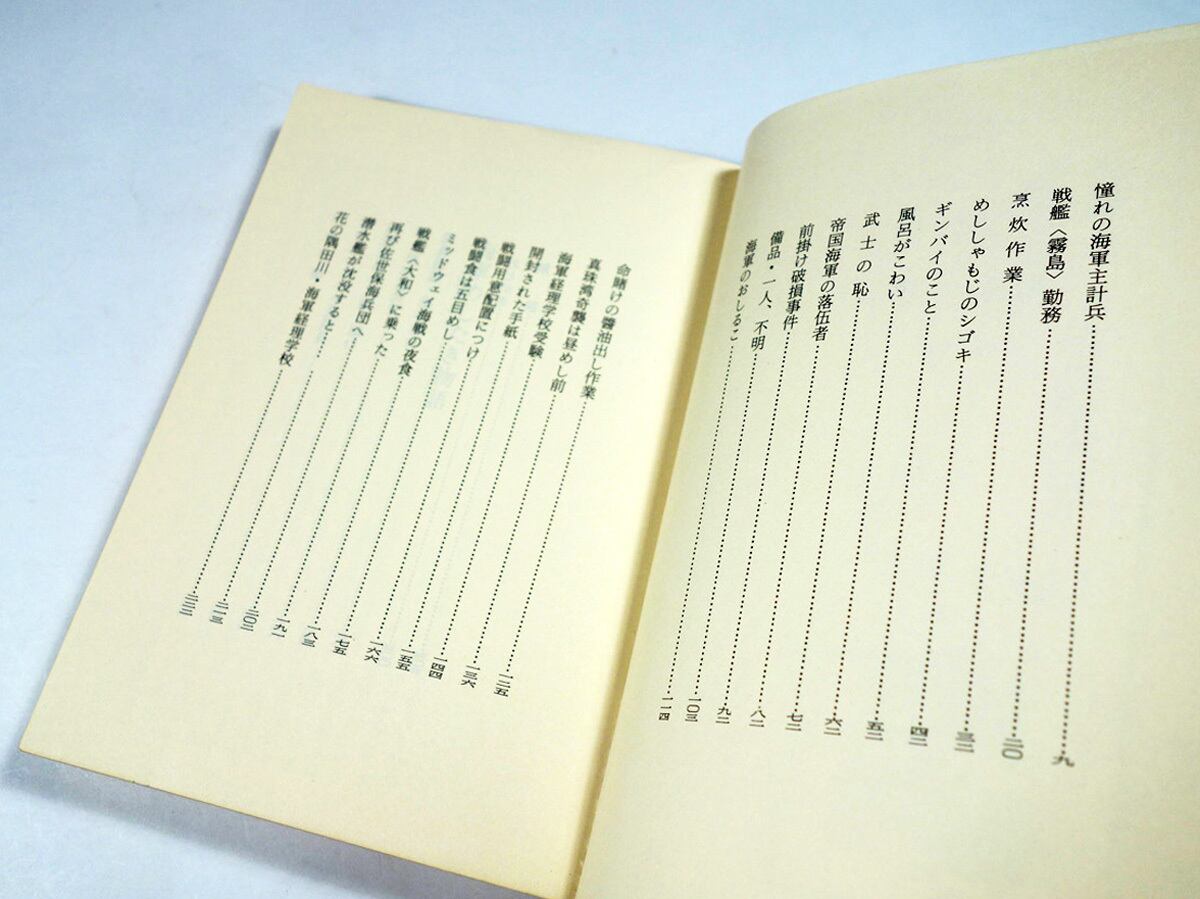 憧れの海軍主計兵……九
戦艦〈霧島〉勤務……二〇
烹炊作業……三二
めししゃもじのシゴキ……四二
ギンバイのこと……五二
風呂がこわい……六二
武士の恥……七二
帝国海軍の落伍者……八二
前掛け破損事件……九二
備品・一人、不明……一〇三
海軍のおしるこ……一一四
命賭けの醬油出し作業……一二五
真珠湾奇襲は昼めし前……一三六
海軍経理学校受験……一四四
開封された手紙……一五五
戦闘用意配置につけ……一六六
戦闘食は五目めし……一七五
ミッドウェイ海戦の夜食……一八三
戦艦〈大和〉に乗った……一九一
再び佐世保海兵団へ……二〇二
潜水艦が沈没すると……二一三
花の隅田川・海軍経理学校……二二二